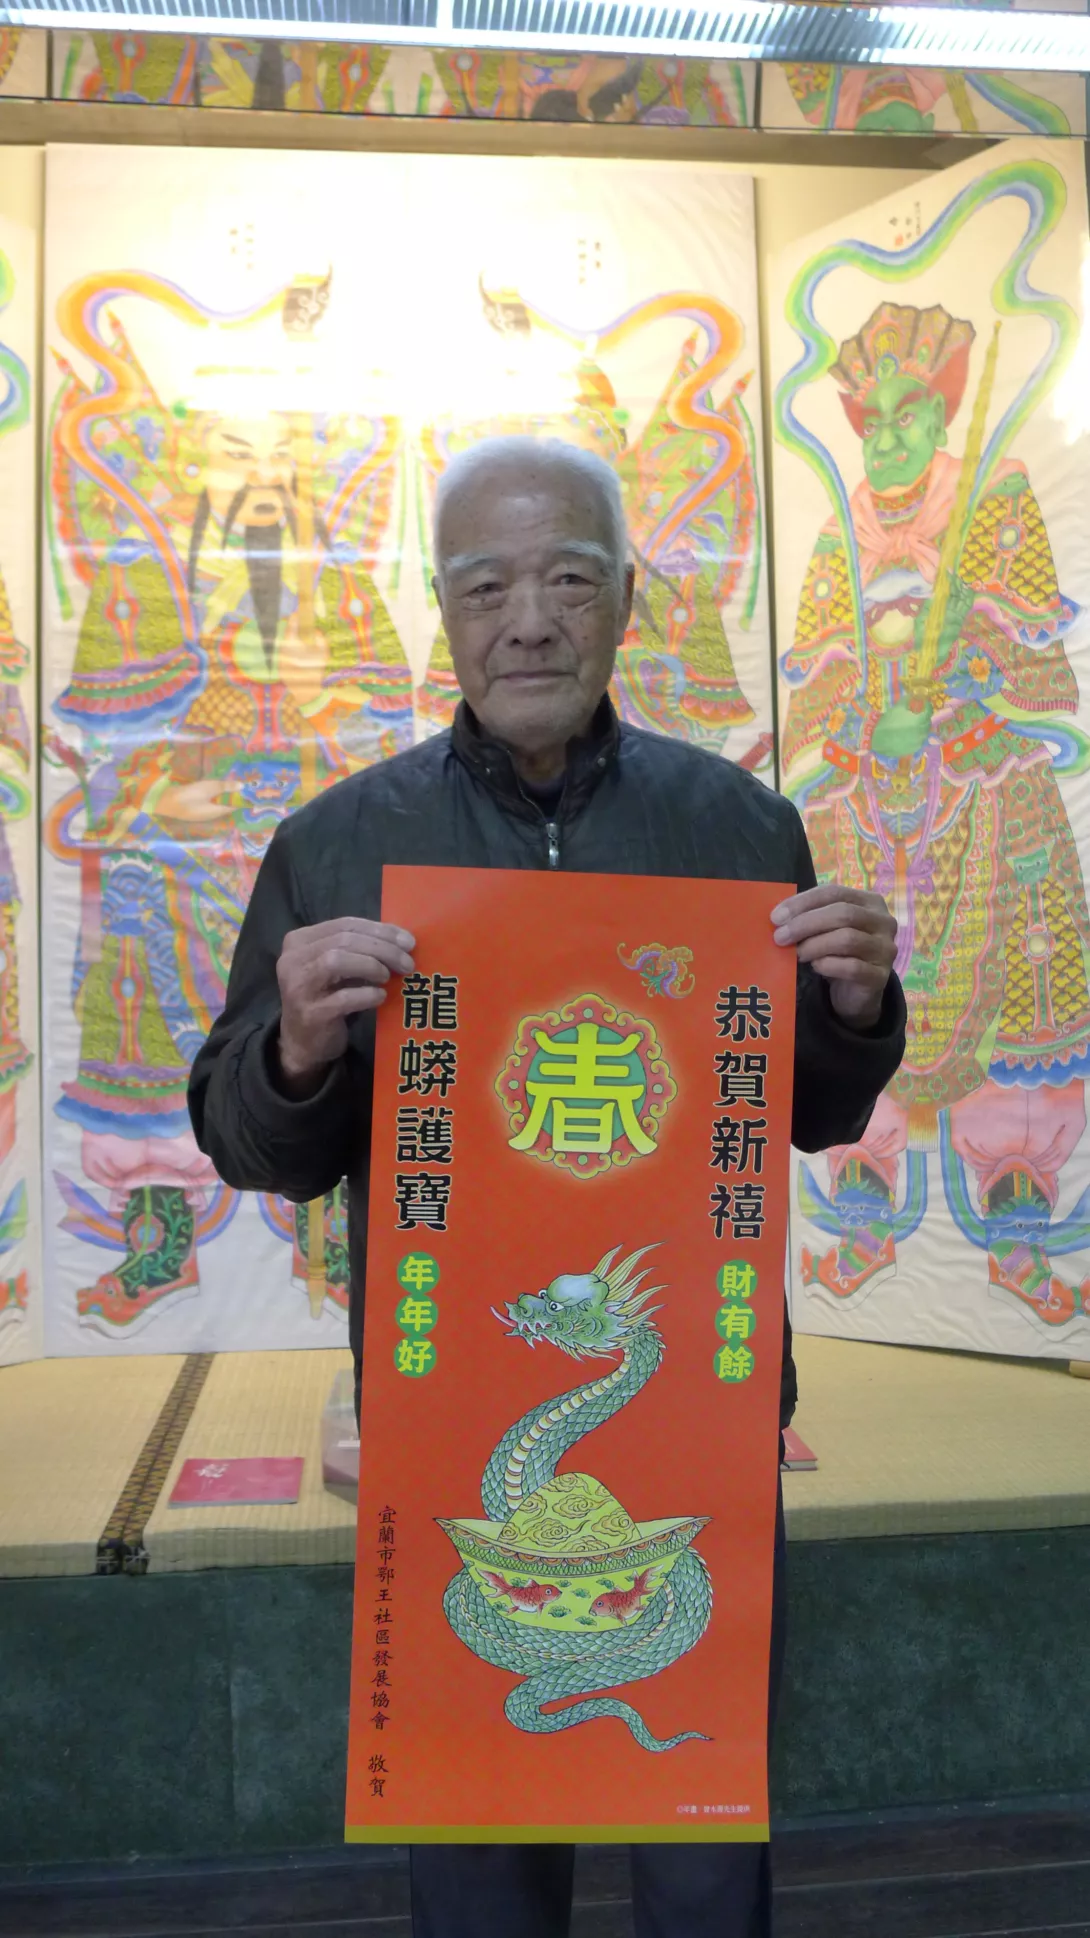 恭賀新禧
財有餘
春
龍蟒護寶
年年好
宜蘭市鄂王社區發展協會 敬賀